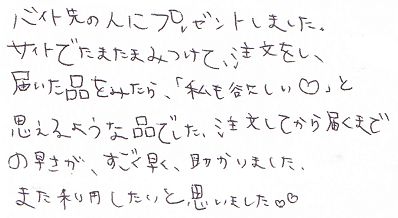 バイト先の人にプレゼントしました。
サイトでたまたまみつけて、注文をし、
届いた品をみたら、「私も欲しい♡」と
思えるような品でした。注文してから届くまで
の早さが、すごく早く、助かりました。
また利用したいと思いました♡♡